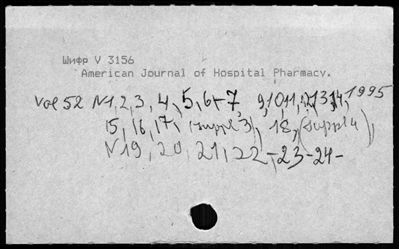 Шифр V 3156
American Journal of Hospital Pharmacy.
Vol 52 N1,2,3,4,5,6-7, 9,10,11,12,13,14, 1995
15, 16, 17, (suppl 3), 18, (suppl 4),
N19, 20, 21, 22-23-24-